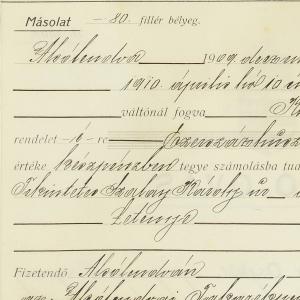 Másolat -80. fillér bélyeg.
Alsólendva 1909. decem
1910. április hó 10 
váltónál fogva
rendelet -i- re Ezerszázhúsz
értéke készpénzben tegye számolásba tud
Tekintetes Szalay Károly úr
Letenye
Fizetendő Alsólendván
Alsólendvai Takarékp